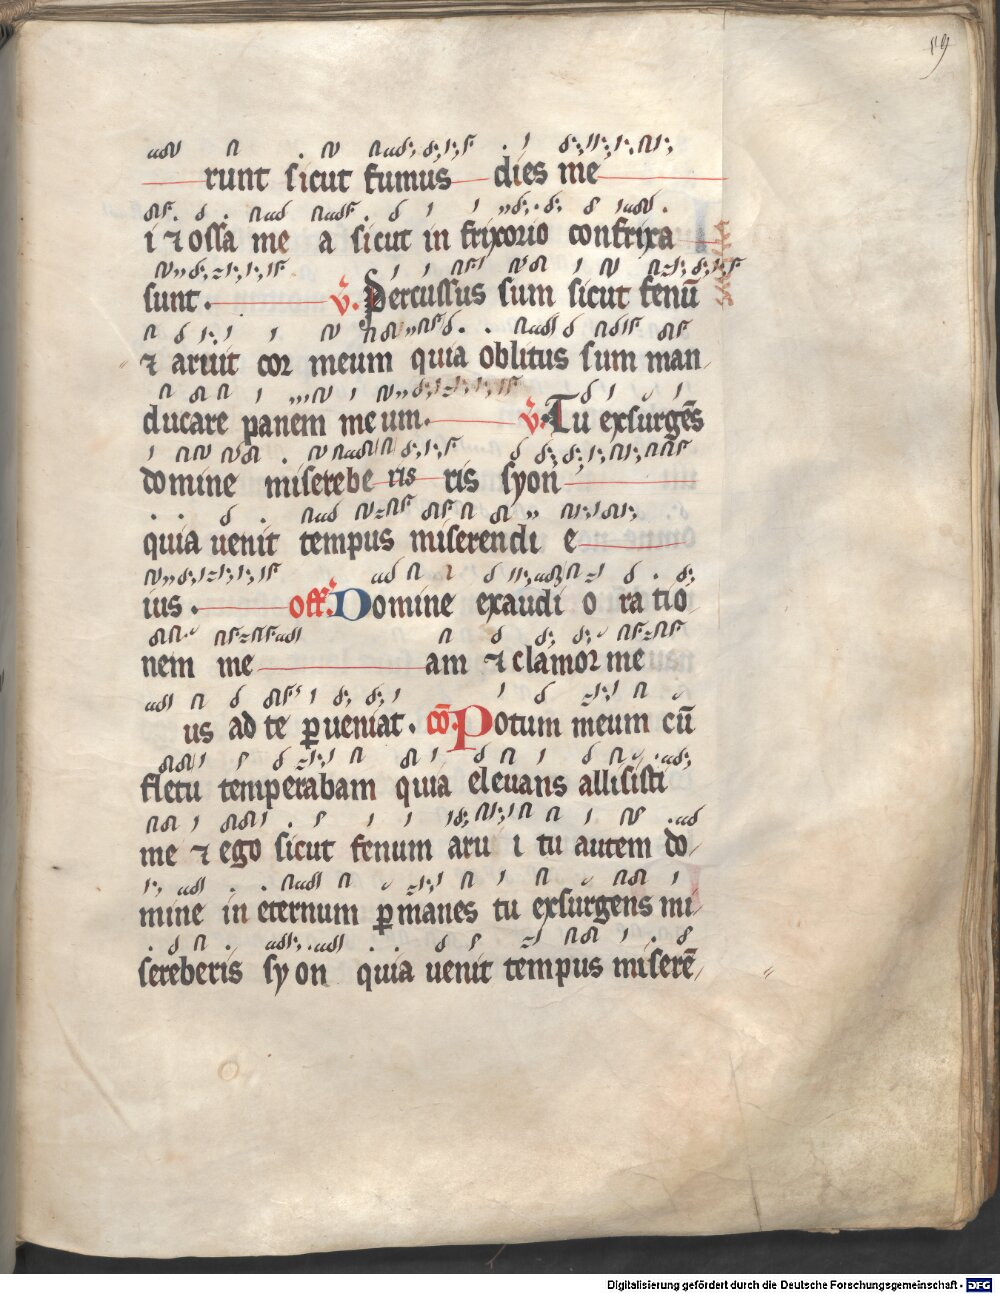 59
runt sicut fumus dies me
i ⁊ ossa me a sicut in frixorio confrixa
sunt. v̄. Percussus sum sicut fenū
⁊ aruit cor meum quia oblitus sum man
ducare panem me um. v̄. Tu exsurgēs
domine miserebe ris ris syon
quia uenit tempus miserendi e
ius. off. Domine exaudi o ra tio
nem me am ⁊ clamor me
us ad te ꝑueniat. cō. Potum meum cū
fletu temperabam quia eleuans allisisti
me ⁊ ego sicut fenum aru i tu autem do
mine in eternum ꝑmanes tu exsurgens mi
sereberis sy on quia uenit tempus miserē
Digitalisierung gefördert durch die Deutsche Forschungsgemeinschaft - DFG